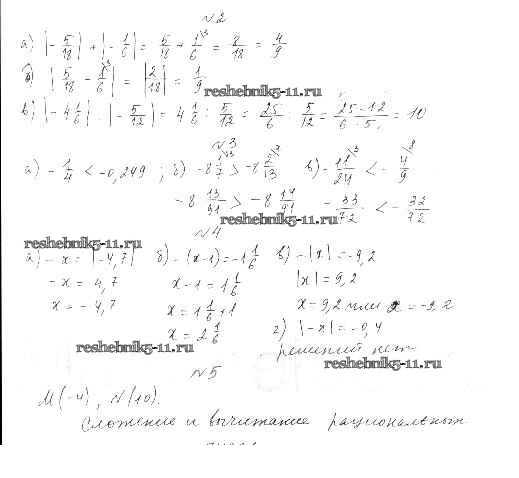 №2
а) |-5/18| + |-1/6| = 5/18 + 1/6 = 8/18 = 4/9
б) |5/18 - 1/6| = |2/18| = 1/9
reshebnik5-11.ru
в) |-4 1/6| : |-5/12| = 4 1/6 : 5/12 = 25/6 : 5/12 = 25·12/6·5 = 10
№3
а) -1/4 < -0,249 ; б) -8 1/7 > -8 2/13 в) -11/24 < -4/9
-8 13/91 > -8 14/91 -33/72 < -32/72
reshebnik5-11.ru
reshebnik5-11.ru
№4
а) -x = |-4,7| б) -(x-1) = -1 1/6 в) -|x| = -9,2
-x = 4,7 x-1 = 1 1/6 |x| = 9,2
x = -4,7 x = 1 1/6 + 1 x = 9,2 или x = -9,2
x = 2 1/6 г) |-x| = -0,4
reshebnik5-11.ru решений нет
reshebnik5-11.ru
№5
M(-4), N(10).
Сложение и вычитание рациональных